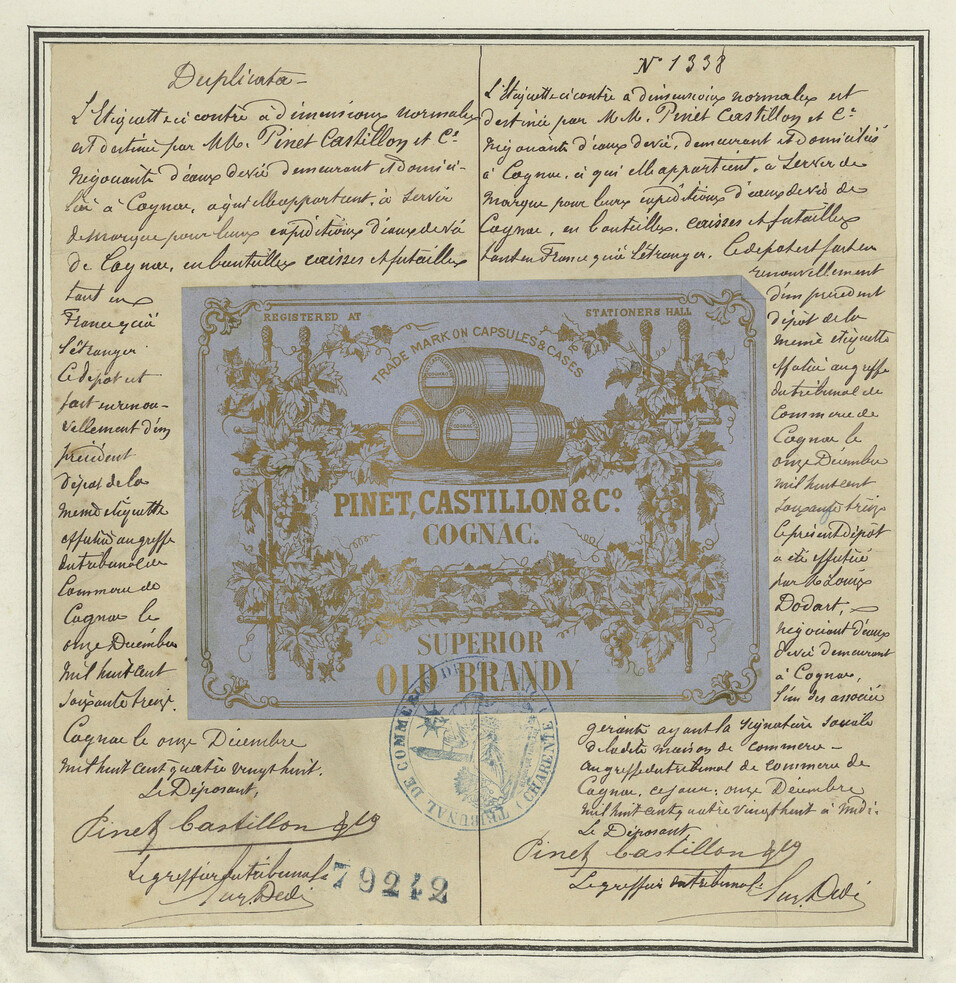 Duplicata
L'Etiquette ci contre à dimensions normales
est destinée par MM. Pinet Castillon et Cie
Négociants d'eaux de vie demeurant et domici-
liés à Cognac, a qui elle appartient, à servir
de marque pour leurs expéditions d'eaux de vie
de Cognac, en bouteilles caisses et futailles
tant en
France qu'à
l'étranger.
Ce depot est
fait en renou-
vellement d'un
précédent
dépôt de la
meme étiquette
effectué au greffe
du tribunal de
Commerce de
Cognac le
onze Décembre
mil huit cent
soixante treize.
Cognac le onze Décembre
mil huit cent quatre vingt huit.
Le Déposant,
Pinet Castillon & Co
Le greffier du tribunal
79242
N° 1338
L'Etiquette ci contre à dimensions normales est
destinée par M.M. Pinet Castillon et Cie
Négociants d'eaux de vie, demeurant et domiciliés
à Cognac, à qui elle appartient, à servir de
marque pour leurs expéditions d'eaux de vie de
Cognac, en bouteilles, caisses et futailles
tant en France qu'à l'étranger. Ce depot est fait en
renouvellement
d'un précédent
dépôt de la
meme étiquette
effectué au greffe
du tribunal de
Commerce de
Cognac le
onze Décembre
mil huit cent
soixante treize
Le présent dépôt
a été effectué
par M Louis
Dodart,
négociant d'eaux
de vie demeurant
à Cognac,
l'un des associés
gérants ayant la signature sociale
de la dite maison de commerce
au greffe du tribunal de commerce de
Cognac, ce jour: onze Décembre
mil huit cent quatre vingt huit à midi.
Le Déposant
Pinet Castillon & Co
Le greffier du tribunal
REGISTERED AT STATIONERS HALL
TRADE MARK ON CAPSULES & CASES
PINET, CASTILLON & Co.
COGNAC.
SUPERIOR
OLD BRANDY
TRIBUNAL DE COMMERCE DE (CHARENTE)